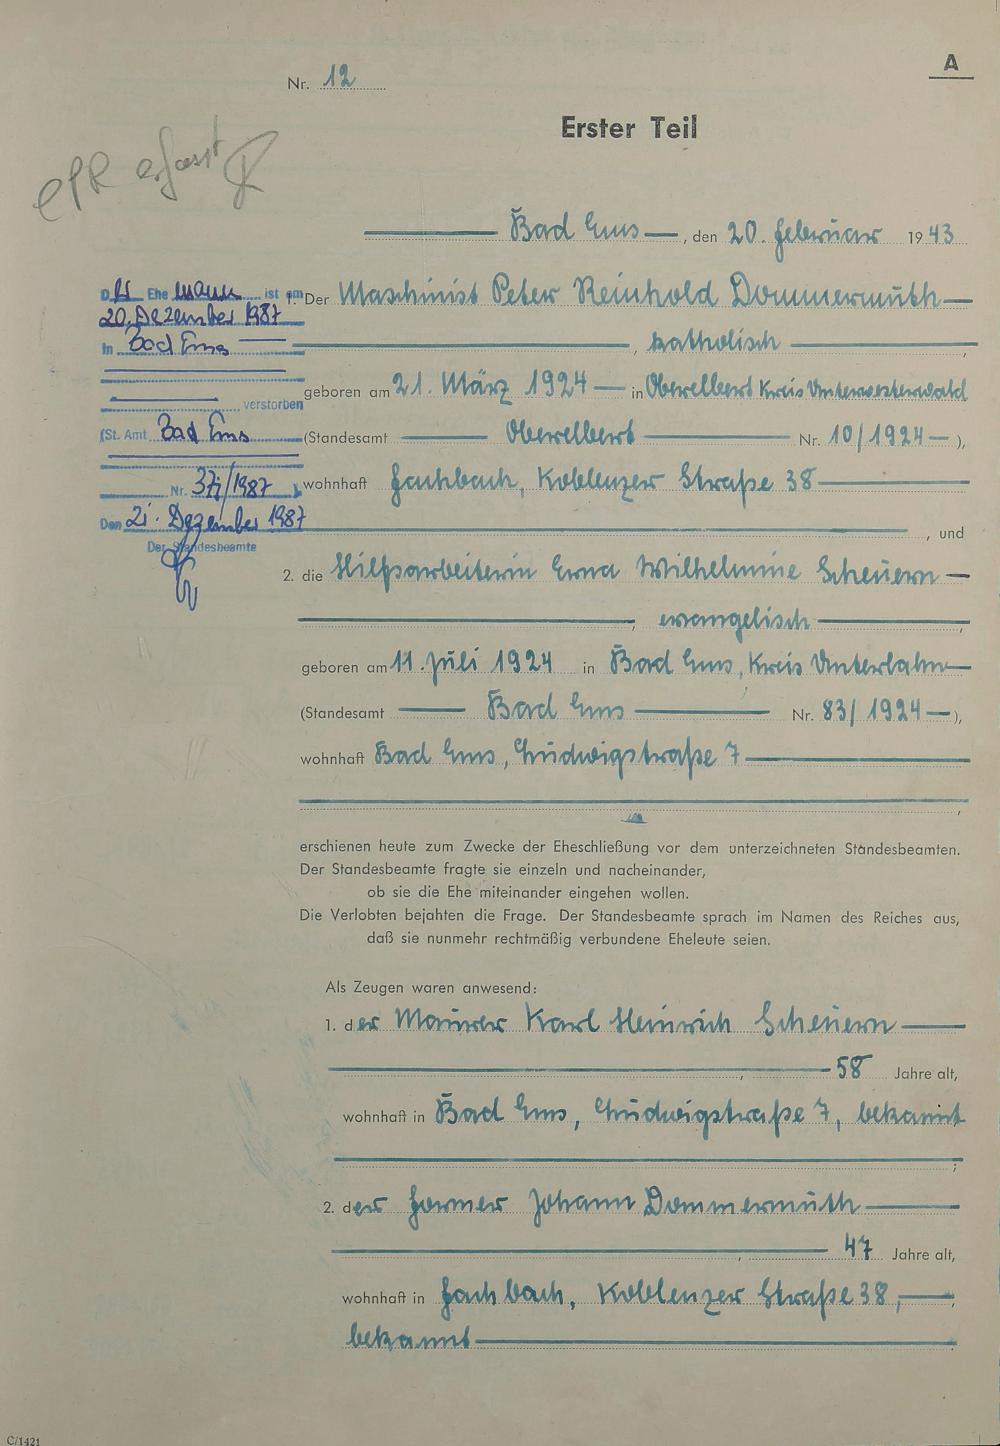 A
Nr. 12
Erster Teil
ePR erfasst
Bad Ems, den 20. Februar 1943
1. Der Maschinist Peter Reinhold Dommermuth
, katholisch
geboren am 21. März 1924 in Oberelbert Kreis Unterwesterwald
(Standesamt Oberelbert Nr. 10/1924),
wohnhaft Fachbach, Koblenzer Straße 38
, und
2. die Hilfsarbeiterin Erna Wilhelmine Scheuern
, evangelisch,
geboren am 11. Juli 1924 in Bad Ems, Kreis Unterlahn
(Standesamt Bad Ems Nr. 83/1924),
wohnhaft Bad Ems, Ludwigstraße 7
,
Der Ehemann ist am
20. Dezember 1987
in Bad Ems
verstorben
(St. Amt Bad Ems
Nr. /1987
Den 21. Dezember 1987
Der Standesbeamte
erschienen heute zum Zwecke der Eheschließung vor dem unterzeichneten Standesbeamten.
Der Standesbeamte fragte sie einzeln und nacheinander,
ob sie die Ehe miteinander eingehen wollen.
Die Verlobten bejahten die Frage. Der Standesbeamte sprach im Namen des Reiches aus,
daß sie nunmehr rechtmäßig verbundene Eheleute seien.
Als Zeugen waren anwesend:
1. der Maurer Karl Heinrich Scheuern
, 58 Jahre alt,
wohnhaft in Bad Ems, Ludwigstraße 7, bekannt
;
2. der Former Johann Dommermuth
, 47 Jahre alt,
wohnhaft in Fachbach, Koblenzer Straße 38,
bekannt
C/1421